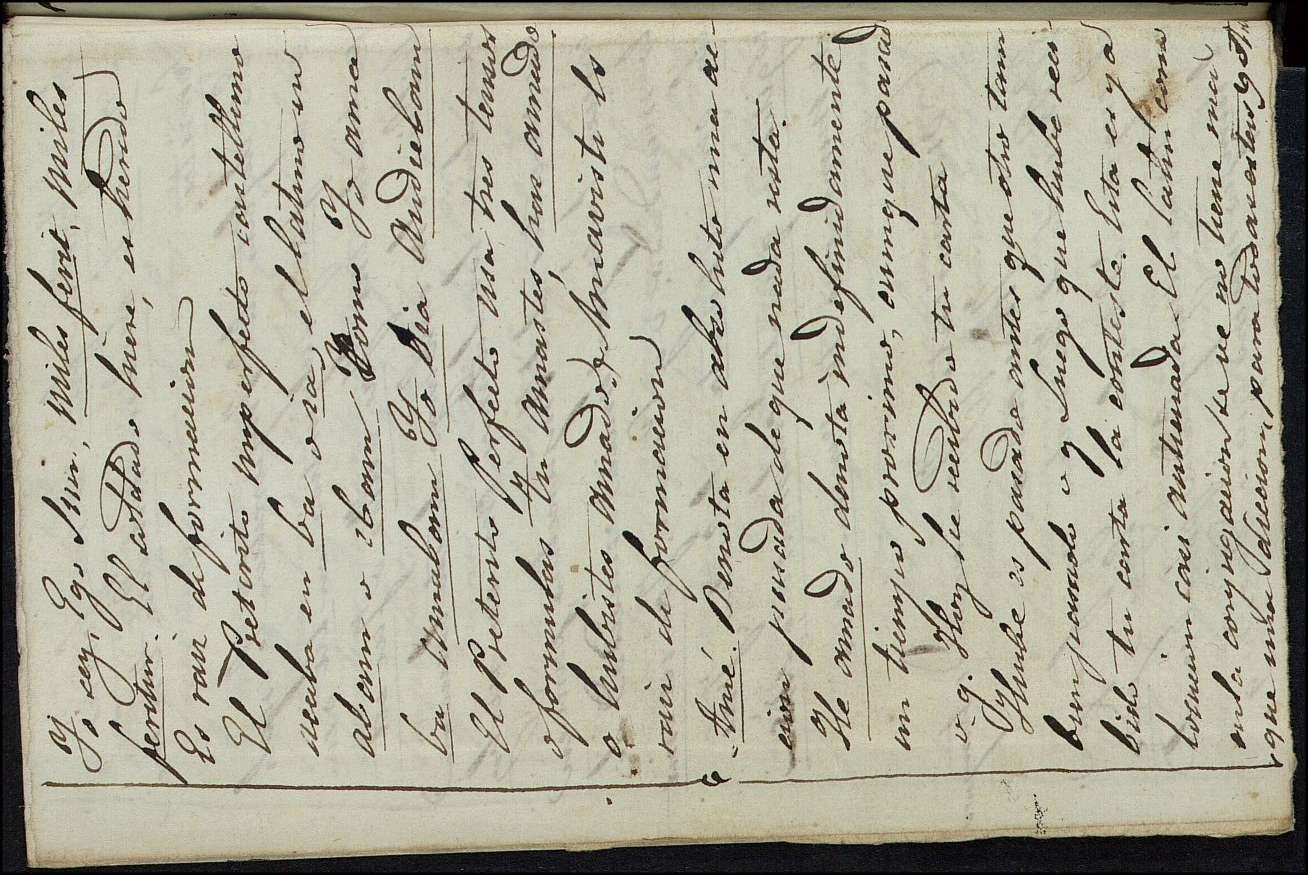 Yo soy, Ego Sum, Miles ferit, Miles
feritur. El soldado hiere, es herido
Es raiz de formacion
El Preterito imperfecto castellano
acaba en ba o ia, el latino en
abam o ibam, Como Yo ama
ba Amabam Yo oia Audiebam
El Preterito Perfecto usa tres tersos
o formulas Tu Amastes, has amado
o hubistes Amado Amavisti lo
raiz de formacion
Amé. Denota en absoluto una ac-
cion pasada de que nada resta.
He amado denota indefinidamente
un tiempo proximo, aunque pasad
v.g. Hoy he recibido tu carta
Y Hube es pasado antes que otro tam
bien pasado v g Luego que hube reci
bido tu carta la conteste. Esta es ya
tambien casi anticuada El latin como
en la conjugacion se ve no tiene ma
s que una Paricion, para todas estas